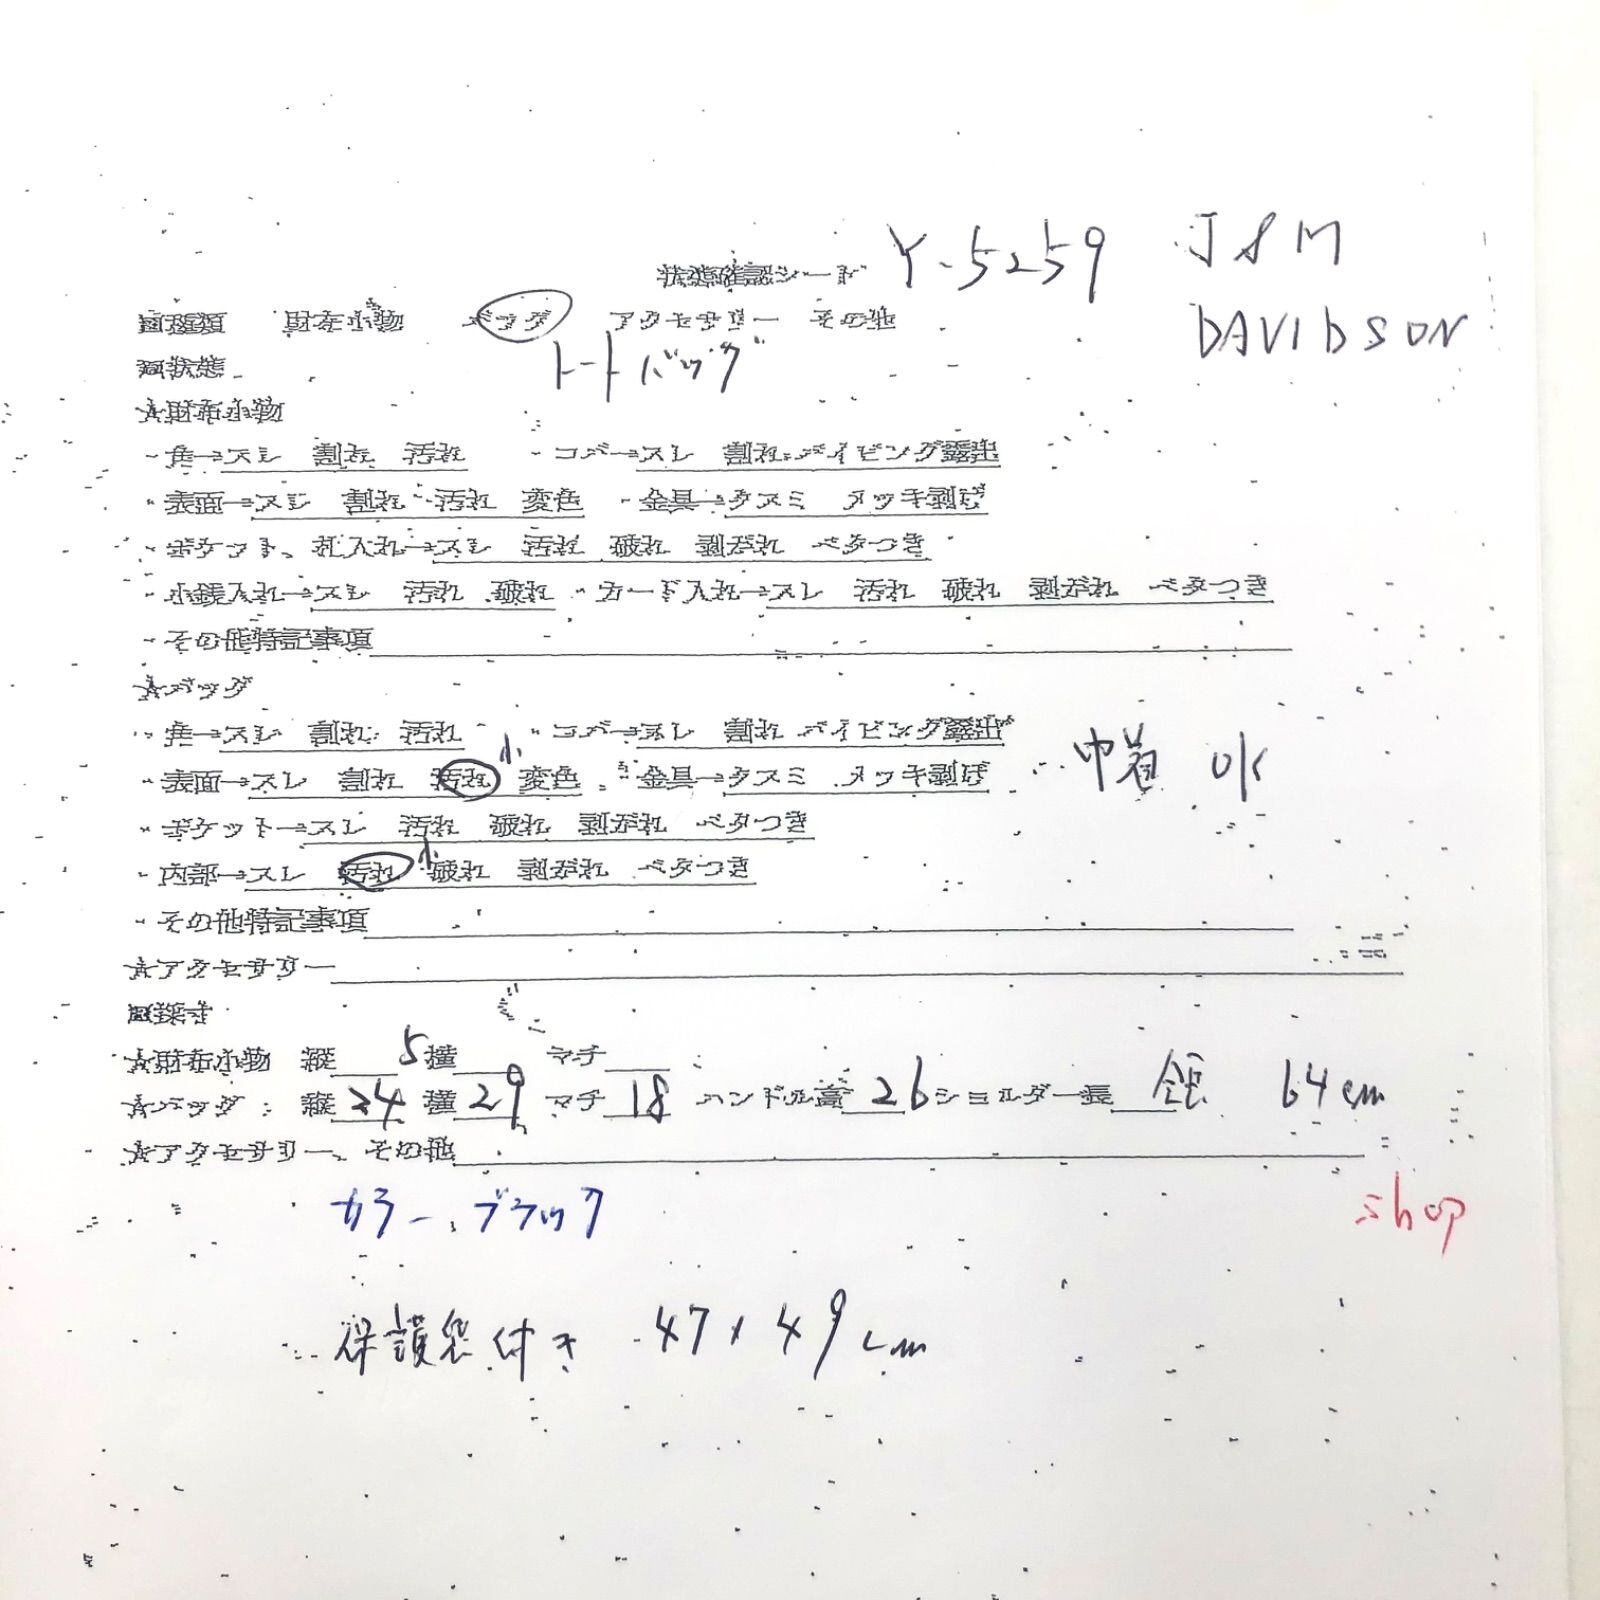 状態確認シート Y-5259 J&M
DAVIDSON
■種類 財布小物 バッグ アクセサリー その他
トートバッグ
■状態
★財布小物
・角→スレ 割れ 汚れ ・コバ→スレ 割れ パイピング露出
・表面→スレ 割れ 汚れ 変色 ・金具→クスミ メッキ剥げ
・ポケット、札入れ→スレ 汚れ 破れ 剥がれ ベタつき
・小銭入れ→スレ 汚れ 破れ ・カード入れ→スレ 汚れ 破れ 剥がれ ベタつき
・その他特記事項
★バッグ
・角→スレ 割れ 汚れ ・コバ→スレ 割れ パイピング露出
・表面→スレ 割れ 汚れ 小 変色 ・金具→クスミ メッキ剥げ 巾着 OK
・ポケット→スレ 汚れ 破れ 剥がれ ベタつき
・内部→スレ 汚れ 小 破れ 剥がれ ベタつき
・その他特記事項
★アクセサリー
■採寸
★財布小物 縦 横 マチ
★バッグ : 縦 24.5 横 29 マチ 18 ハンドル高 26 ショルダー長 全長 64cm
★アクセサリー、その他
カラー、ブラック
shop
保護袋付き 47×49cm